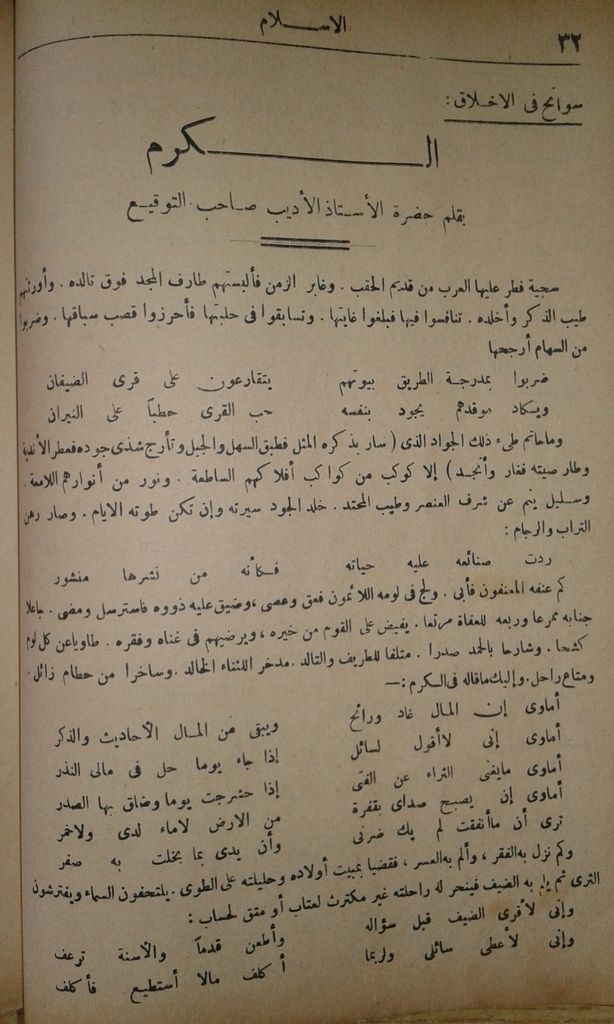 ٣٢
الاسلام
سوانح فى الاخلاق :
الكرم
بقلم حضرة الأستاذ الأديب صاحب التوقيع
سجية فطر عليها العرب من قديم الحقب . وغابر الزمن فألبستهم طارف المجد فوق تالده . وأورثتهم
طيب الذكر وأخلده . تنافسوا فيها فبلغوا غايتها . وتسابقوا فى حلبتها فأحرزوا قصب سباقها . وضربوا
من السهام أرجحها
ضربوا بمدرجة الطريق بيوتهم يتقارعون على قرى الضيفان
ويكاد موقدهم يجود بنفسه حب القرى حطباً على النيران
وما حاتم طىء ذلك الجواد الذى ( سار بذكره المثل فطبق السهل والجبل وتأرج شذى جوده فعطر الأندية
وطار صيته فغار وأنجد ) إلا كوكب من كواكب أفلاكهم الساطعة . ونور من أنوارهم اللامعة .
وسليل ينم عن شرف العنصر وطيب المحتد . خلد الجود سيرته وإن تكن طوته الايام . وصار رهن
التراب والرجام :
ردت صنائعه عليه حياته فكأنه من نشرها منشور
كم عنفه المعنفون فأبى . ولج فى لومه اللائمون فعق وعصى ، وضيق عليه ذووه فاسترسل ومضى . جاعلا
جنابه ممرعا وربعه للعفاة مرتعا . يفيض على القوم من خيره ، ويرضيهم فى غناه وفقره . طاويا عن كل لوم
كشحا . وشارحا بالحمد صدرا . متلفا للطريف والتالد . مدخر اللثناء الخالد . وساخرا من حطام زائل .
ومتاع راحل . وإليك ماقاله فى الكرم : —
أماوى إن المال غاد ورائح ويبقى من المال الأحاديث والذكر
أماوى إنى لاأقول لسائل إذا جاء يوما حل فى مالى النذر
أماوى مايغنى الثراء عن الفتى إذا حشرجت يوما وضاق بها الصدر
أماوى إن يصبح صداى بقفرة من الارض لاماء لدى ولاخمر
ترى أن ماأنفقت لم يك ضرنى وأن يدى بما بخلت به صفر
وكم نزل به الفقر ، وألم به العسر ، فقضيا بمبيت أولاده وحليلته على الطوى . يلتحفون السماء ويفترشون
الثرى ثم يلم به الضيف فينحر له راحلته غير مكترث لعتاب أو متق لحساب :
وإنى لأقرى الضيف قبل سؤاله وأطعن قدماً والأسنة ترعف
وإنى لأعطى سائلى ولربما أكلف مالا أستطيع فأكلف